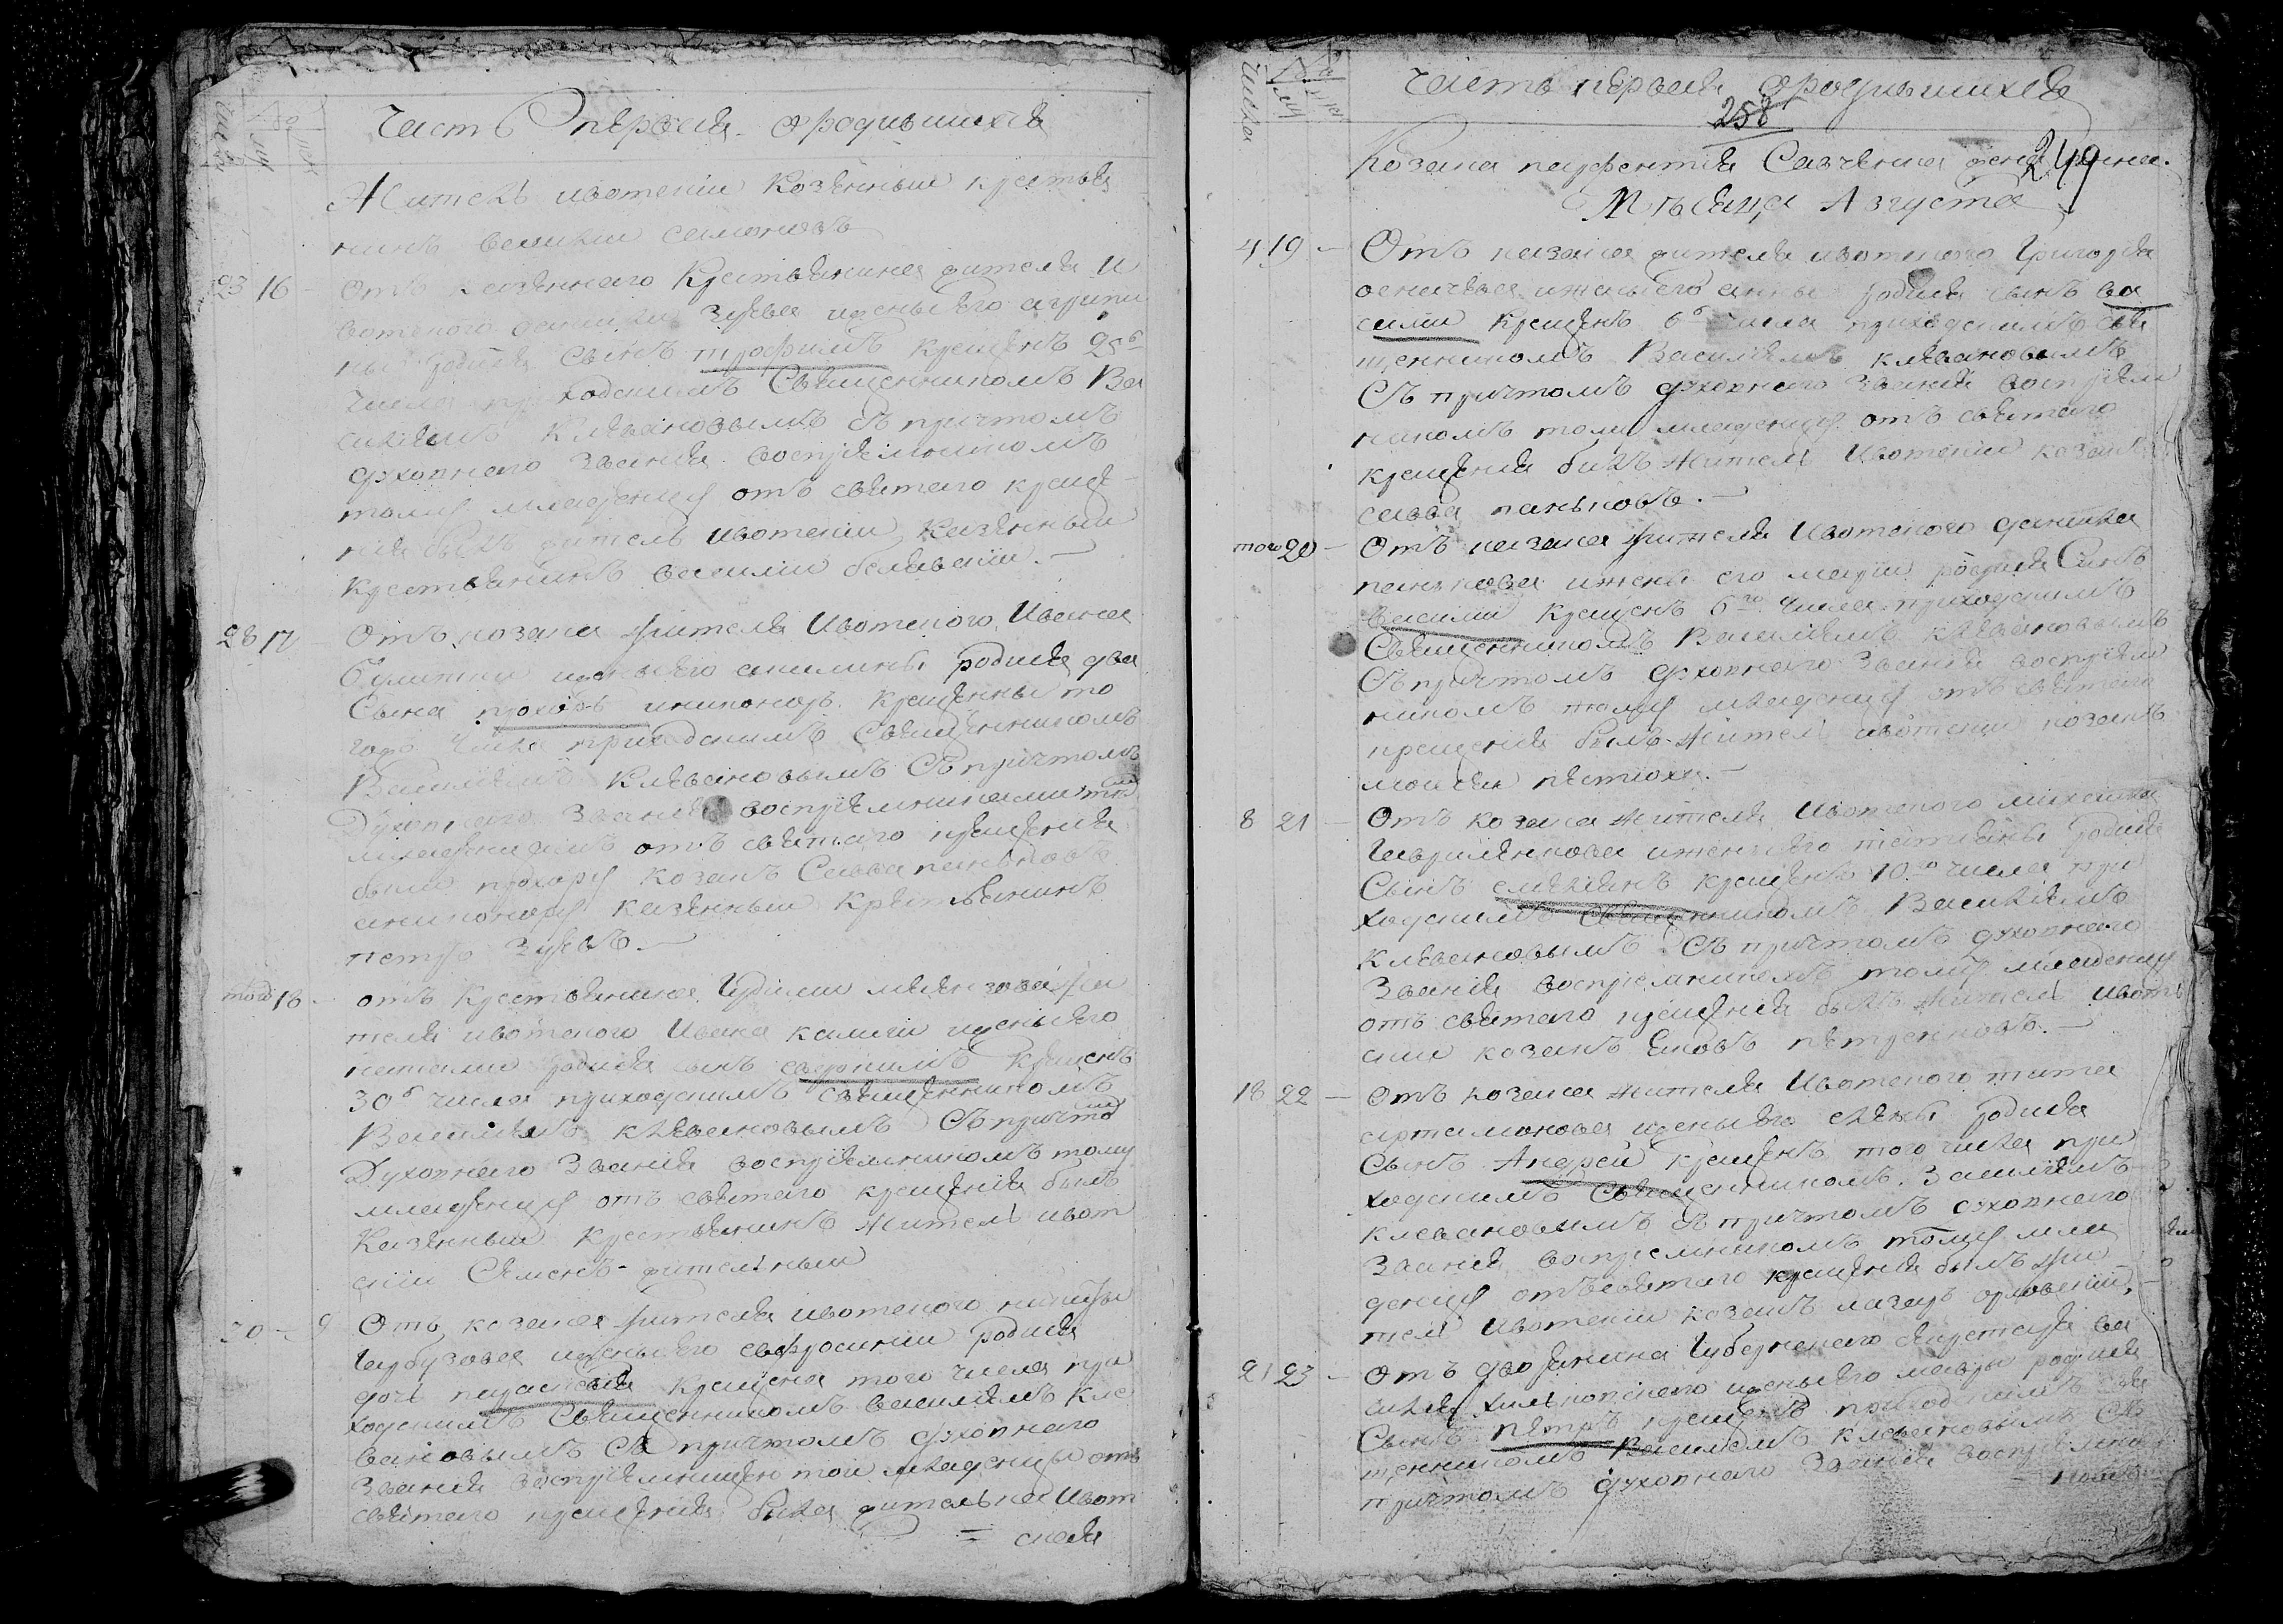 Часть Первая о родившихся
Житель ивотскїи Козенныи крестья
нинъ василїи самоновъ
23 16 Отъ казенного Крестьянина жителя И
вотского данила Зуева ижены его агрипи
ны родился Сынъ трофимъ крещенъ 25 б
Числа приходскимъ Священникомъ Ва
силїемъ Клевановымъ съ причтомъ
духовнаго Званїя воспрїемникомъ
тому младенцу отъ святаго креще
нїя былъ житель ивотскїи казенныи
крестьянинъ василїи
28 17 Отъ козака жителя Ивотского Ивана
ижены его акилины родися два
Сына прохоръ иниконоръ крещенны то
гожъ числа приходскимъ Священникомъ
Василїемъ Клевановымъ Съ причтомъ
Духовнаго Званїя воспрїемниками тем
младенцамъ отъ святаго крещенїя
были прохору козакъ Савва паньковъ
аниконору казенныи крестьянинъ
петръ Зуевъ.
того 18 отъ Крестьянина жи
теля ивотского Ивана калиги ижены его
наталїи родися сынъ крещенъ
30 б числа приходскимъ священникомъ
Василїемъ клевановымъ Съ причтом
Духовнаго Званїя воспрїемникомъ тому
младенцу отъ святаго крещенїя былъ
Казенныи крестьянинъ житель ивот
скїи Семенъ жительныи
30 Отъ козака жителя ивотского никиты
Гарбузова ижены его евфросинїи родися
дочь параскевїя крещена того числа при
ходскимъ Священникомъ василїемъ Кле
вановымъ Съ причтомъ духовнаго
Званїя воспрїемницею тои младенцы отъ
святаго крещенїя была жителька Ивот
= ская
числа
Часть первая о родившихся
258
249
Козака парфентїя Савченка жена
Мѣсяца Августа
4 19 Отъ казака жителя ивотского Григорїя
ижены его анны родися сынъ ва
силїи крещенъ 6 б числа приходскимъ свя
щенникомъ Василїемъ клевановымъ
Съ причтомъ духовнаго Званїя воспрїем
никомъ тому младенцу отъ святаго
крещенїя билъ житель Ивотскїи козакъ
савва паньковъ.
того 20 Отъ казака жителя Ивотского данила
панькова ижены его марїи родися Синъ
василїи крещенъ 6 го числа приходскимъ
Священникомъ Василїемъ клевановымъ
Съ причтомъ духовнаго Званїя воспрїем
никомъ тому младенцу отъ святаго
крещенїя былъ житель ивотскїи козакъ
моисеи
8 21 Отъ козака жителя Ивотского михаила
Гавриленкова ижены его татїаны родися
Сынъ крещенъ 10 го числа при
ходскимъ Священникомъ Василїемъ
клевановымъ Съ причтомъ духовнаго
Званїя воспрїемникомъ тому младенцу
отъ святаго крещенїя былъ житель ивот
скїи козакъ яковъ петренковъ.
18 22 Отъ козака жителя Ивотского тита
артамонова ижены его елены родися
Сынъ Андреи крещенъ того числа при
ходскимъ Священникомъ Василїемъ
клевановымъ съ причтомъ духовнаго
Званїя воспрїемникомъ тому мла
денцу отъ святаго крещенїя былъ жи
тель Ивотскїи козакъ лазарь
21 23 Отъ дворянина Губернского Секретаря ва
силїя ижены его мавры родися
Сынъ петръ крещенъ приходскимъ свя
щенникомъ Василїемъ клевановымъ Съ
причтомъ духовнаго Званїя воспрїемни
= комъ